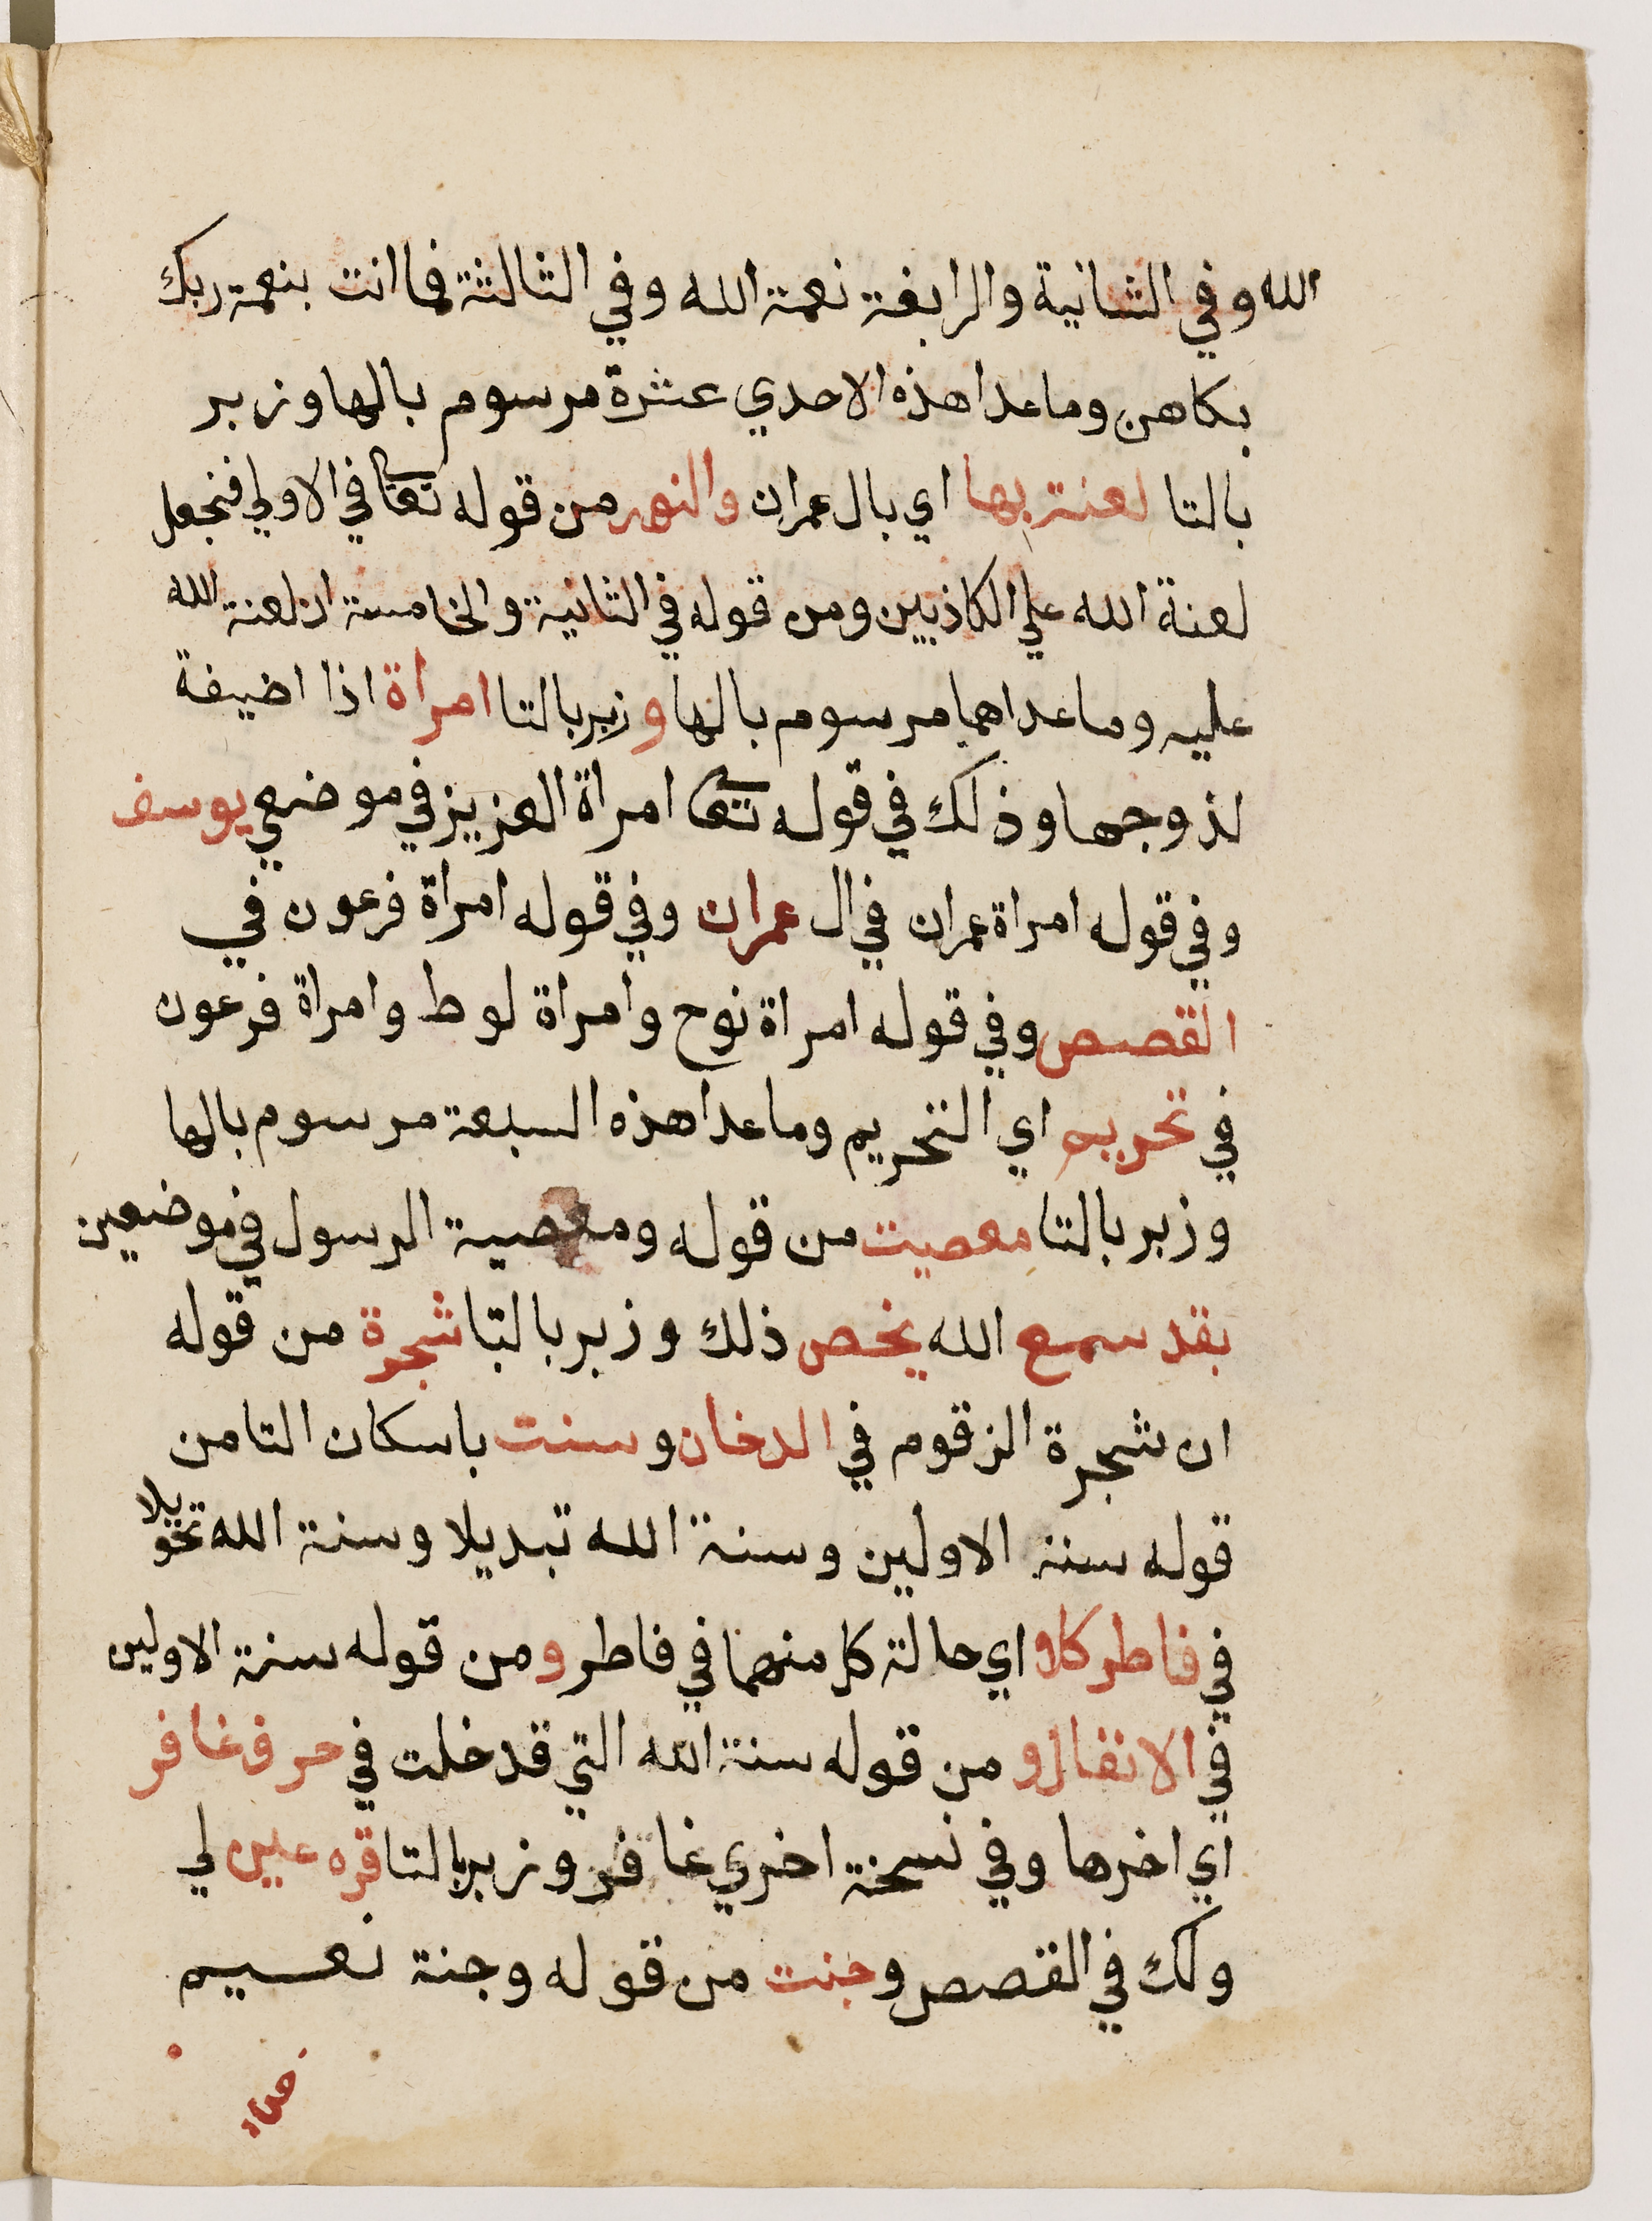 الله وفي الثانية والرابعة نعمة الله وفي الثالثة فما انت بنعمة ربك
بكاهن وما عدا هذه الاحدي عشرة مرسوم بالها وزبر
بالتا لعنت بها اي بال عمران والنور من قوله تعا في الاولي فنجعل
لعنة الله علي الكاذبين ومن قوله في الثانية والخامسة ان لعنة الله
عليه وما عداهما مرسوم بالها وزبر بالتا امراة اذا اضيفة
لذوجها وذلك في قوله تعا امراة العزيز في موضعي يوسف
وفي قوله امراة عمران في ال عمران وفي قوله امراة فرعون في
القصص وفي قوله امراة نوح وامراة لوط وامراة فرعون
في تحريم اي التحريم وما عدا هذه السبعة مرسوم بالها
وزبر بالتا معصيت من قوله ومعصية الرسول في موضعين
بقد سمع الله يخص ذلك وزبر بالتا شجرة من قوله
ان شجرة الزقوم في الدخان وسنت باسكان التا من
قوله سنة الاولين وسنة الله تبديلا وسنة الله تحويلا
في فاطر كلا اي حالة كل منهما في فاطر ومن قوله سنة الاولين
في الانفال و من قوله سنة الله التي قد خلت في حرف غافر
اي اخرها وفي نسخة اخري غافر وزبر بالتا قره عين لي
ولك في القصص وجنت من قوله وجنة نعيم